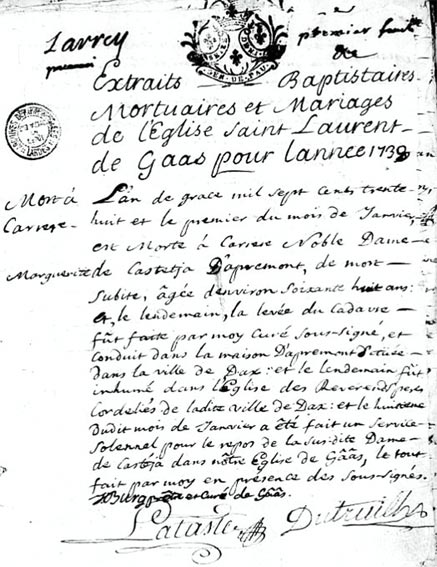 premier
de
Extraits Baptistaires
Mortuaires et Mariages
de l'Eglise Saint Laurent
de Gaas pour l'annee 1738
Mort à
Carrere
L'an de grace mil sept cents trente
huit et le premier du mois de Janvie,
est Morte à Carrere Noble Dame
Marguerite de Castetja D'apremont, de mort
subite, âgée d'environ soixante huit ans:
et, le lendemain, la levée du Cadavre
fût faite par moy Curé sous-signé, et
conduit dans la maison D'apremont située
dans la ville de Dax: et le lendemain fût
inhumé dans l'Eglise des Reverends peres
Cordeliés de ladite ville de Dax: et le huitieme
dudit mois de Janvier a été fait un service
solennel pour le repos de la sus-dite Dame
de Castéja dans nôtre Eglise de Gââs, le tout
fait par moy en présence des sous-signés.
et Curé de Gââs.
Lataste Dutruilh